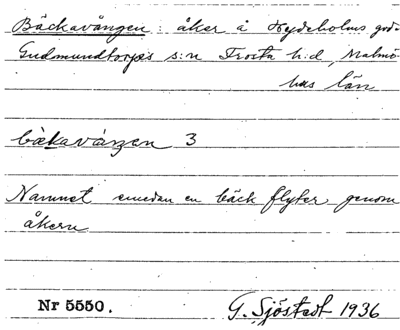 Bäckavången: åker å Hydeholms gods
Gudmundtorps s:n Frosta h:d, Malmö-
hus län
bäkavåŋən 3
Namnet emedan en bäck flyter genom
åkern
Nr 5550.
G. Sjöstedt 1936